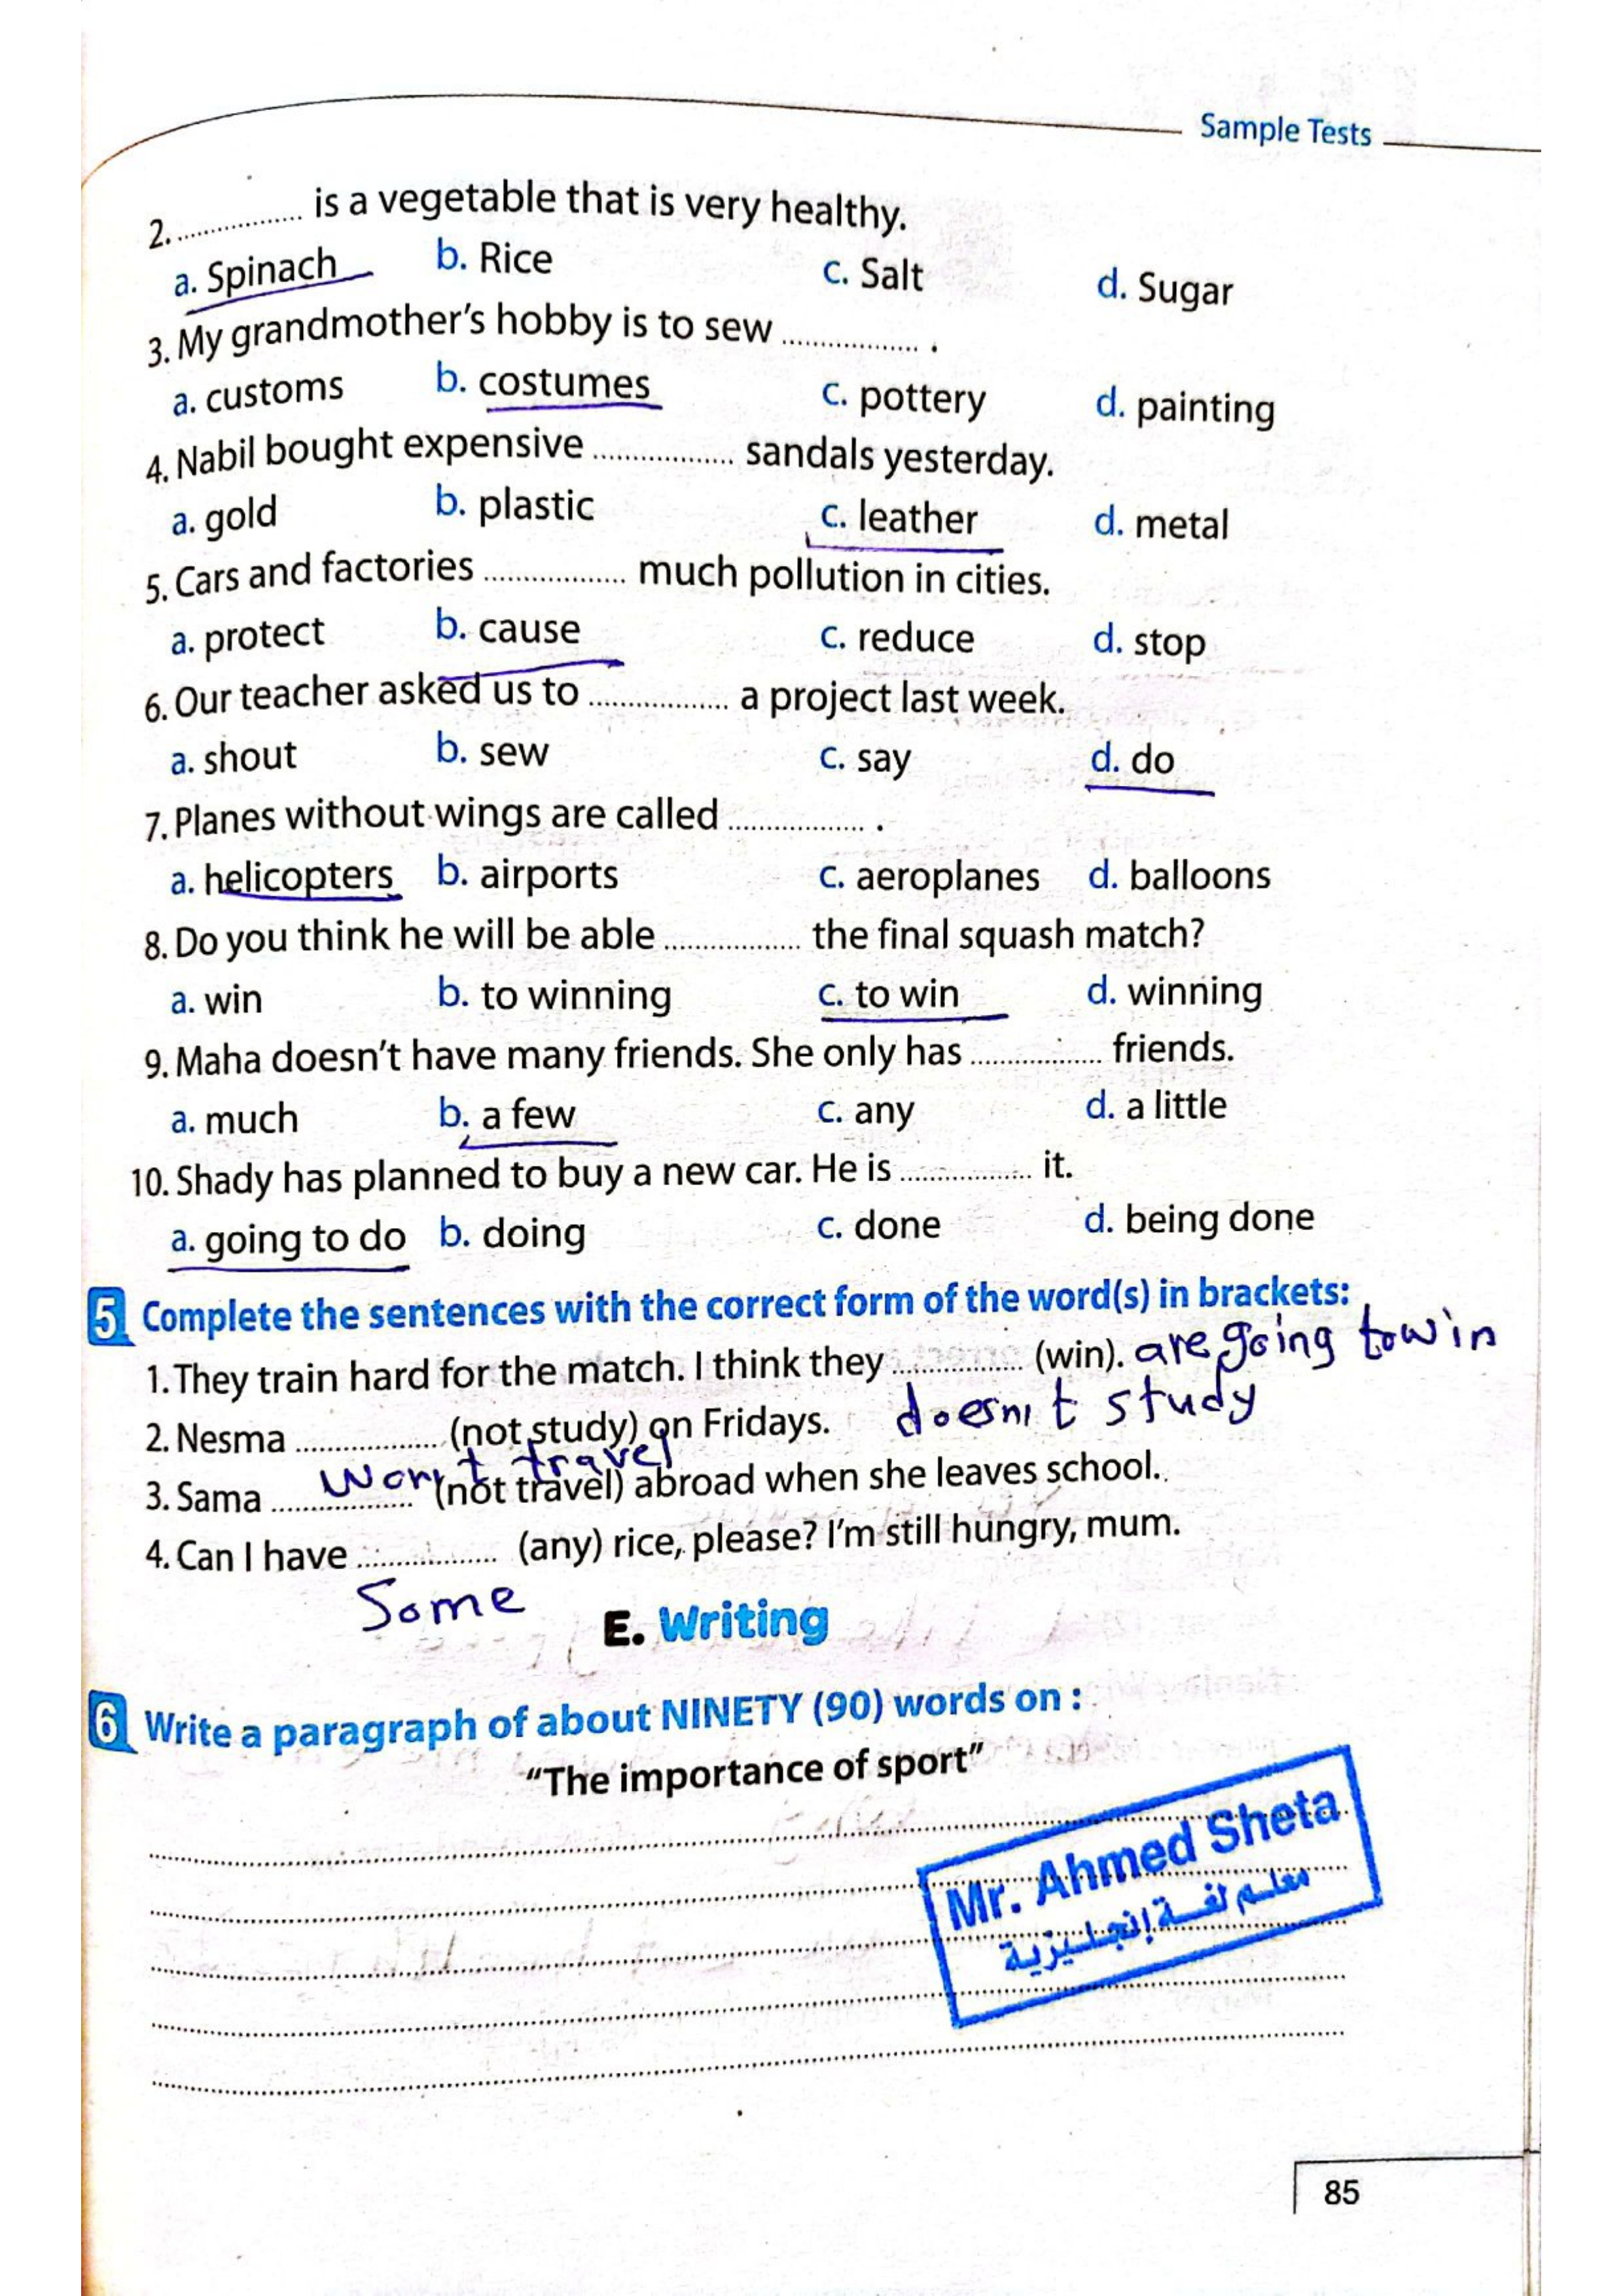 Sample Tests
2. ................ is a vegetable that is very healthy.
a. Spinach b. Rice c. Salt d. Sugar
3. My grandmother's hobby is to sew ................ .
a. customs b. costumes c. pottery d. painting
4. Nabil bought expensive ................ sandals yesterday.
a. gold b. plastic c. leather d. metal
5. Cars and factories ................ much pollution in cities.
a. protect b. cause c. reduce d. stop
6. Our teacher asked us to ................ a project last week.
a. shout b. sew c. say d. do
7. Planes without wings are called ................ .
a. helicopters b. airports c. aeroplanes d. balloons
8. Do you think he will be able ................ the final squash match?
a. win b. to winning c. to win d. winning
9. Maha doesn't have many friends. She only has ................ friends.
a. much b. a few c. any d. a little
10. Shady has planned to buy a new car. He is ................ it.
a. going to do b. doing c. done d. being done
5 Complete the sentences with the correct form of the word(s) in brackets:
1. They train hard for the match. I think they ................ (win). are going to win
2. Nesma ................ (not study) on Fridays. doesn't study
won't travel
3. Sama ................ (not travel) abroad when she leaves school.
4. Can I have ................ (any) rice, please? I'm still hungry, mum.
Some
E. Writing
6 Write a paragraph of about NINETY (90) words on :
"The importance of sport"
Mr. Ahmed Sheta
معلم لغة إنجليزية
85